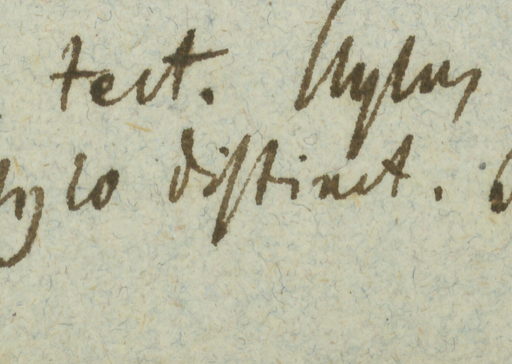 tect. Stylus
stylo distinct.